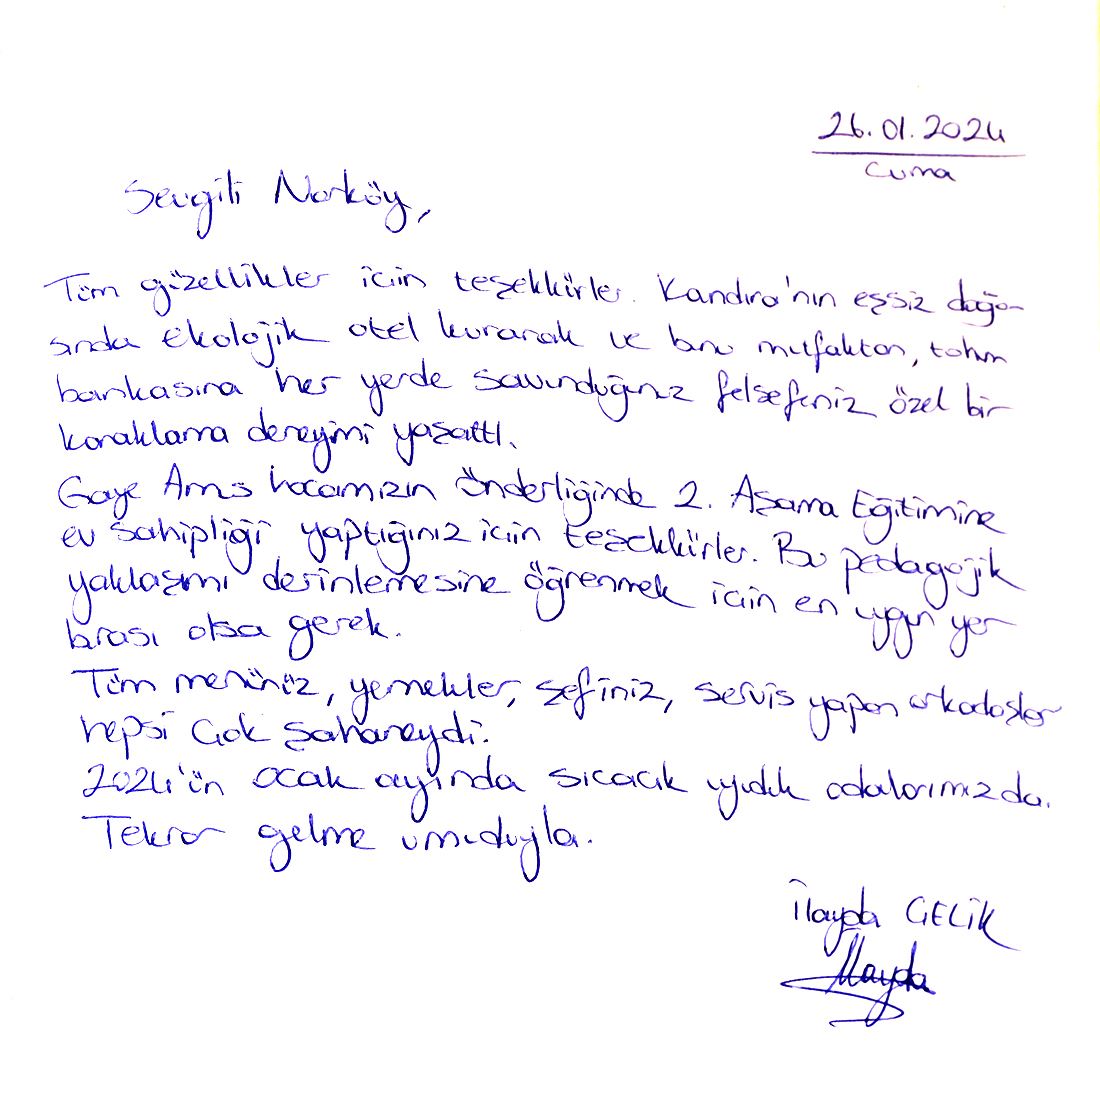 26.01.2024
Cuma
Sevgili Narköy,
Tüm güzellikler için teşekkürler. Kandıra'nın eşsiz doğa-
sında ekolojik otel kurarak ve bunu mutfaktan, tohum
bankasına her yerde savunduğunuz felsefeniz özel bir
konaklama deneyimi yaşattı.
Gaye Amus hocamızın önderliğinde 2. Aşama Eğitimine
ev sahipliği yaptığınız için teşekkürler. Bu pedagojik
yaklaşımı derinlemesine öğrenmek için en uygun yer
burası olsa gerek.
Tüm menünüz, yemekler, şefiniz, servis yapan arkadaşlar
hepsi çok şahaneydi.
2024'ün ocak ayında sıcacık uyuduk odalarımızda.
Tekrar gelme umuduyla.
İlayda ÇELİK
İlayda